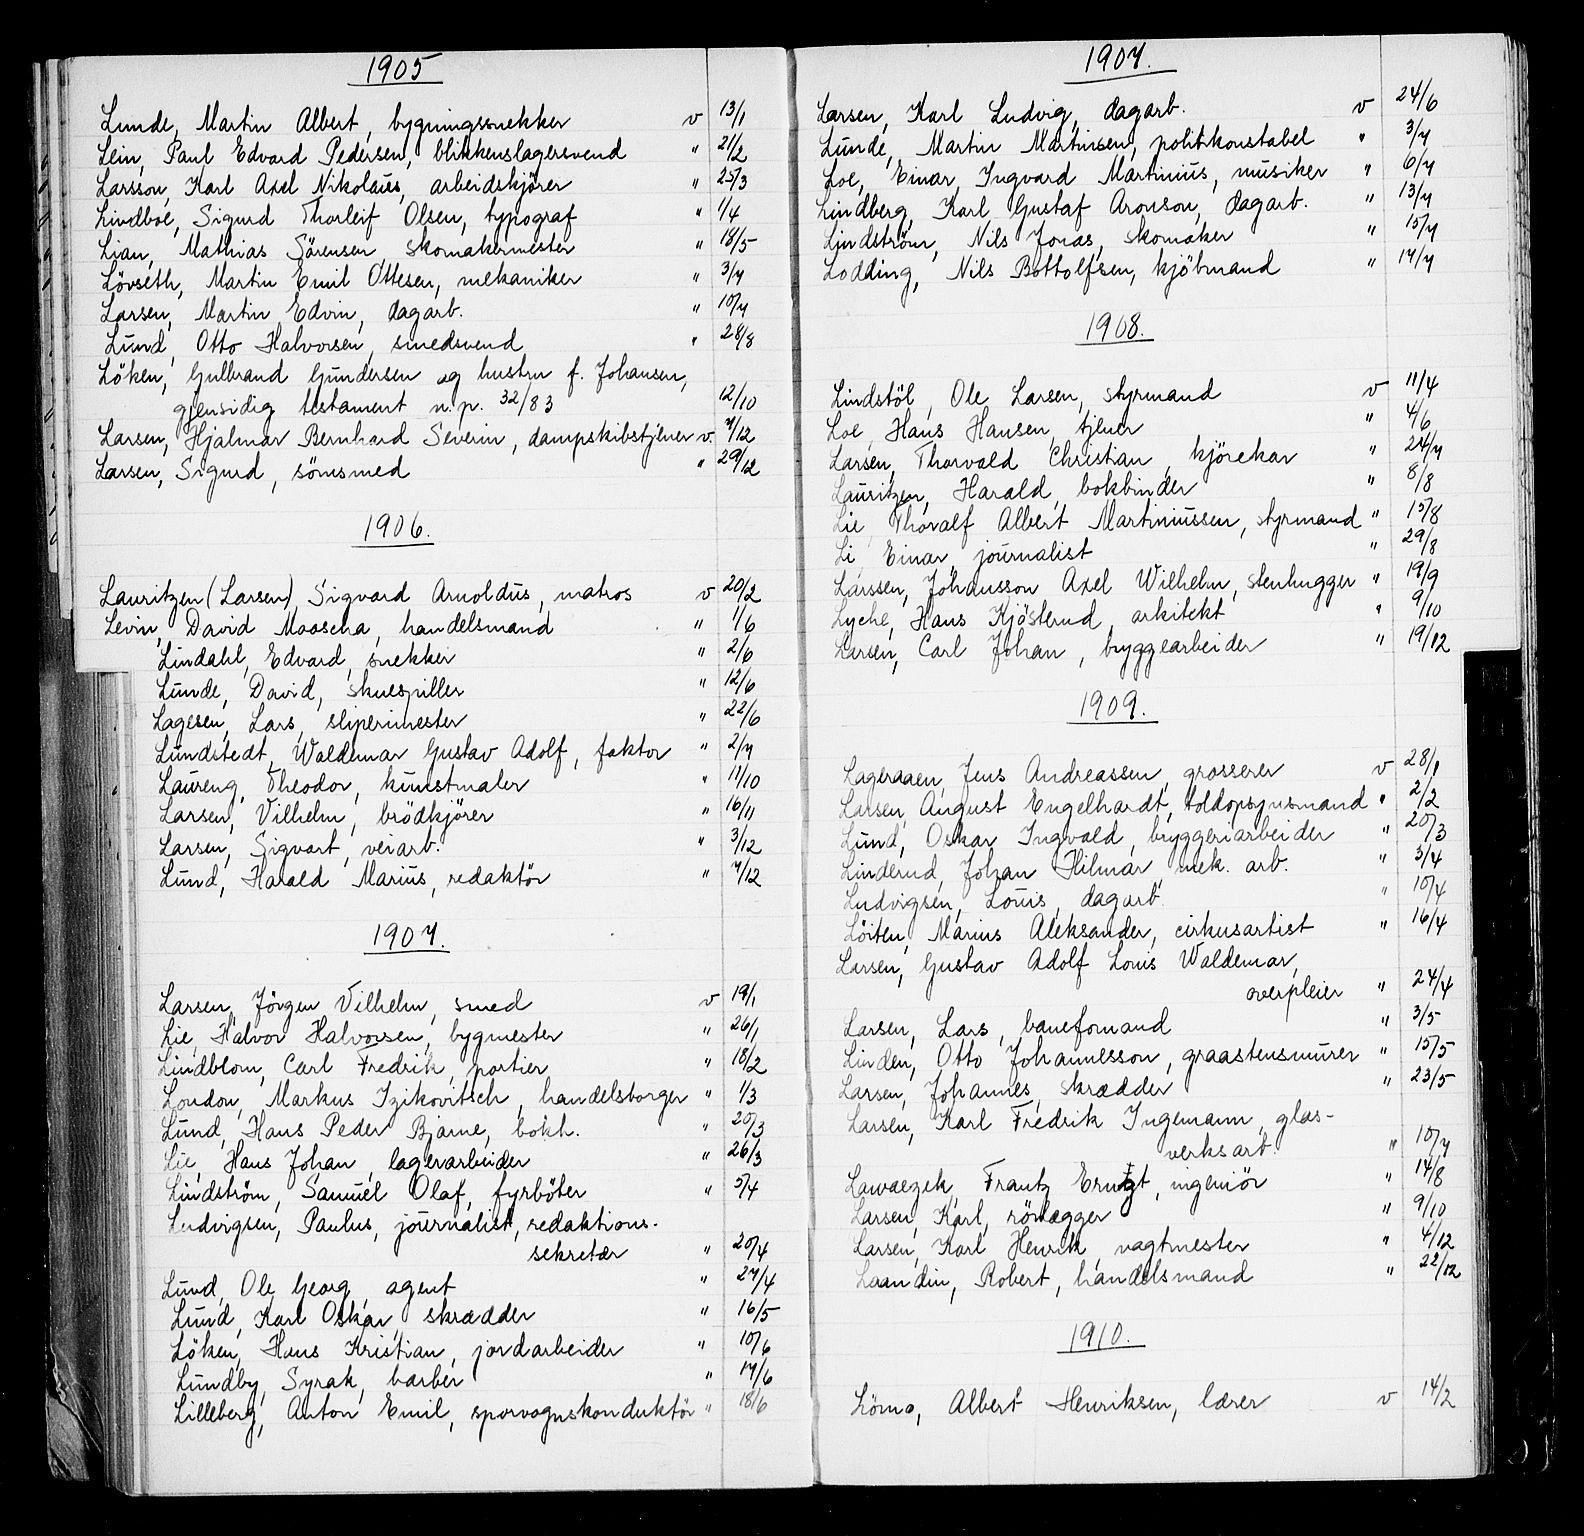 1905
Lunde, Martin Albert, bygningssnekker v 13/1
Lein, Paul Edvard Pedersen, blikkenslagersvend " 21/2
Larsson, Karl Axel Nikolaus, arbeidskjörer " 25/3
Lindboe, Sigurd Thorleif Olsen, typograf " 1/4
Lian, Mathias Sörensen, skomakermester " 18/5
Lövseth, Martin Emil Ottesen, mekaniker " 3/7
Larsen, Martin Edvin, dagarb. " 10/7
Lund, Otto Halvorsen, smedsvend " 28/8
Löken, Gulbrand Gundersen og hustru f. Johansen,
gjensidig testament n.p. 32/83 12/10
Larsen, Hjalmar Bernhard Severin, dampskibstjener v. 7/12
Larsen, Sigurd, sömsmed " 29/12
1906.
Lauritzen (Larsen), Sigvard Arnoldus, matros v 20/2
Levin, David Moascha, handelsmand " 1/6
Lindahl, Edvard, snekker " 2/6
Lunde, David, skuespiller " 12/6
Lagesen, Lars, sliperimester " 22/6
Lundstedt, Waldemar Gustav Adolf, faktor " 2/7
Laureng, Theodor, kunstmaler " 11/10
Larsen, Vilhelm, brödkjörer " 16/11
Larsen, Sigvart, veiarb. " 3/12
Lund, Harald Marius, redaktör " 7/12
1907.
Larsen, Jörgen Vilhelm, smed v 19/1
Lie, Halvor Halvorsen, bygmester " 26/1
Lindblom, Carl Fredrik, portier " 18/2
London, Markus Izikovitsch, handelsborger " 1/3
Lund, Hans Peder Bjarne, bokh. " 20/3
Lie, Hans Johan, lagerarbeider " 26/3
Lindström, Samuel Olaf, fyrböter " 5/4
Ludvigsen, Paulus, journalist, redaktions-
sekretær " 20/4
Lund, Ole Georg, agent " 27/4
Lund, Karl Oskar, skrædder " 16/5
Löken, Hans Kristian, jordarbeider " 10/6
Lundby, Syrak, barber " 17/6
Lilleberg, Anton Emil, sporvognskonduktör " 18/6
1907.
Larsen, Karl Ludvig, dagarb. v 24/6
Lunde, Martin Martinsen, politikonstabel " 3/7
Loe, Einar Ingvard Martinius, musiker " 6/7
Lindberg, Karl Gustaf Aronson, dagarb. " 13/7
Lindström, Nils Jonas, skomaker " 15/7
Lodding, Nils Bottolfsen, kjöbmand " 17/7
1908.
Lindstöl, Ole Larsen, styrmand v 11/4
Loe, Hans Hansen, tjener " 4/6
Larsen, Thorvald Christian, kjörekar " 24/7
Lauritzen, Harald, bokbinder " 8/8
Lie, Thoralf Albert Martiniussen, styrmand " 15/8
Li, Einar, journalist " 29/8
Larssen, Johansson Axel Wilhelm, stenhugger " 19/9
Lyche, Hans Kjösterud, arkitekt " 9/10
Larsen, Carl Johan, bryggearbeider " 19/12
1909.
Lageraaen, Jens Andreassen, grosserer v 28/1
Larsen, August Engelhardt, toldopsynsmand " 2/2
Lund, Oskar Ingvald, bryggeriarbeider " 20/3
Linderud, Johan Hilmar, mek. arb. " 3/4
Ludvigsen, Louis, dagarb. " 10/4
Löiten, Marius Aleksander, cirkusartist " 16/4
Larsen, Gustav Adolf Louis Waldemar,
overpleier " 24/4
Larsen, Lars, baneformand " 3/5
Linden, Otto Johannesson, graastensmurer " 15/5
Larsen, Johannes, skrædder " 23/5
Larsen, Karl Fredrik Ingemann, glas-
verksarb. " 10/7
Lawaezek, Frantz Ernst, ingeniör " 14/8
Larsen, Karl, rörlægger " 9/10
Larsen, Karl Henrik, vagtmester " 4/12
Laandin, Robert, handelsmand " 22/12
1910.
Lömo, Albert Henriksen, lærer v 14/2